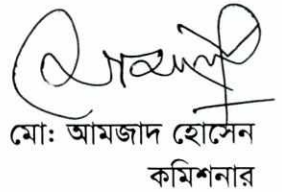 মো: আমজাদ হোসেন
কমিশনার